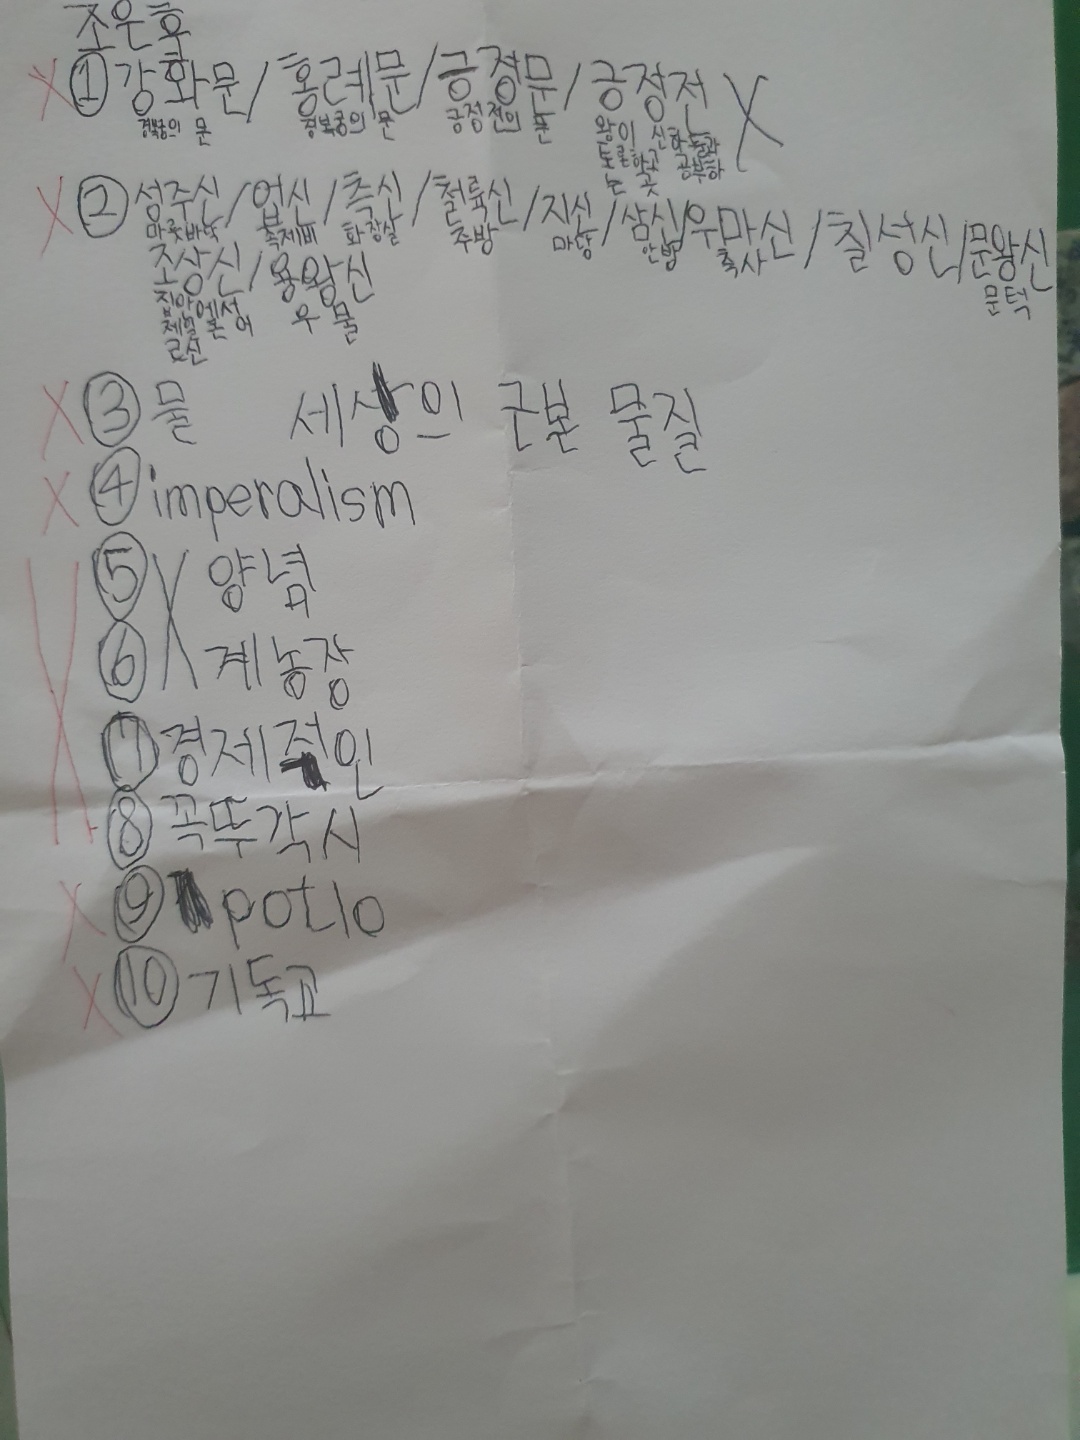 조은후
① 강화문/홍례문/긍정문/긍정전
경복궁의 문 경복궁의 문 긍정전의 문 왕이 신하들과
토론하고 공부하
는 곳
② 성주신/업신/측신/철륙신/지신/삼신/우마신/칠성신/문왕신
마룻바닥 족제비 화장실 주방 마당 안방 축사 문턱
조상신/용왕신
집안에서 우물
제일
로신
③ 물 세상의 근본 물질
④ imperalism
⑤ 양념
⑥ 계농장
⑦ 경제적인
⑧ 꼭뚜각시
⑨ potlo
⑩ 기독교